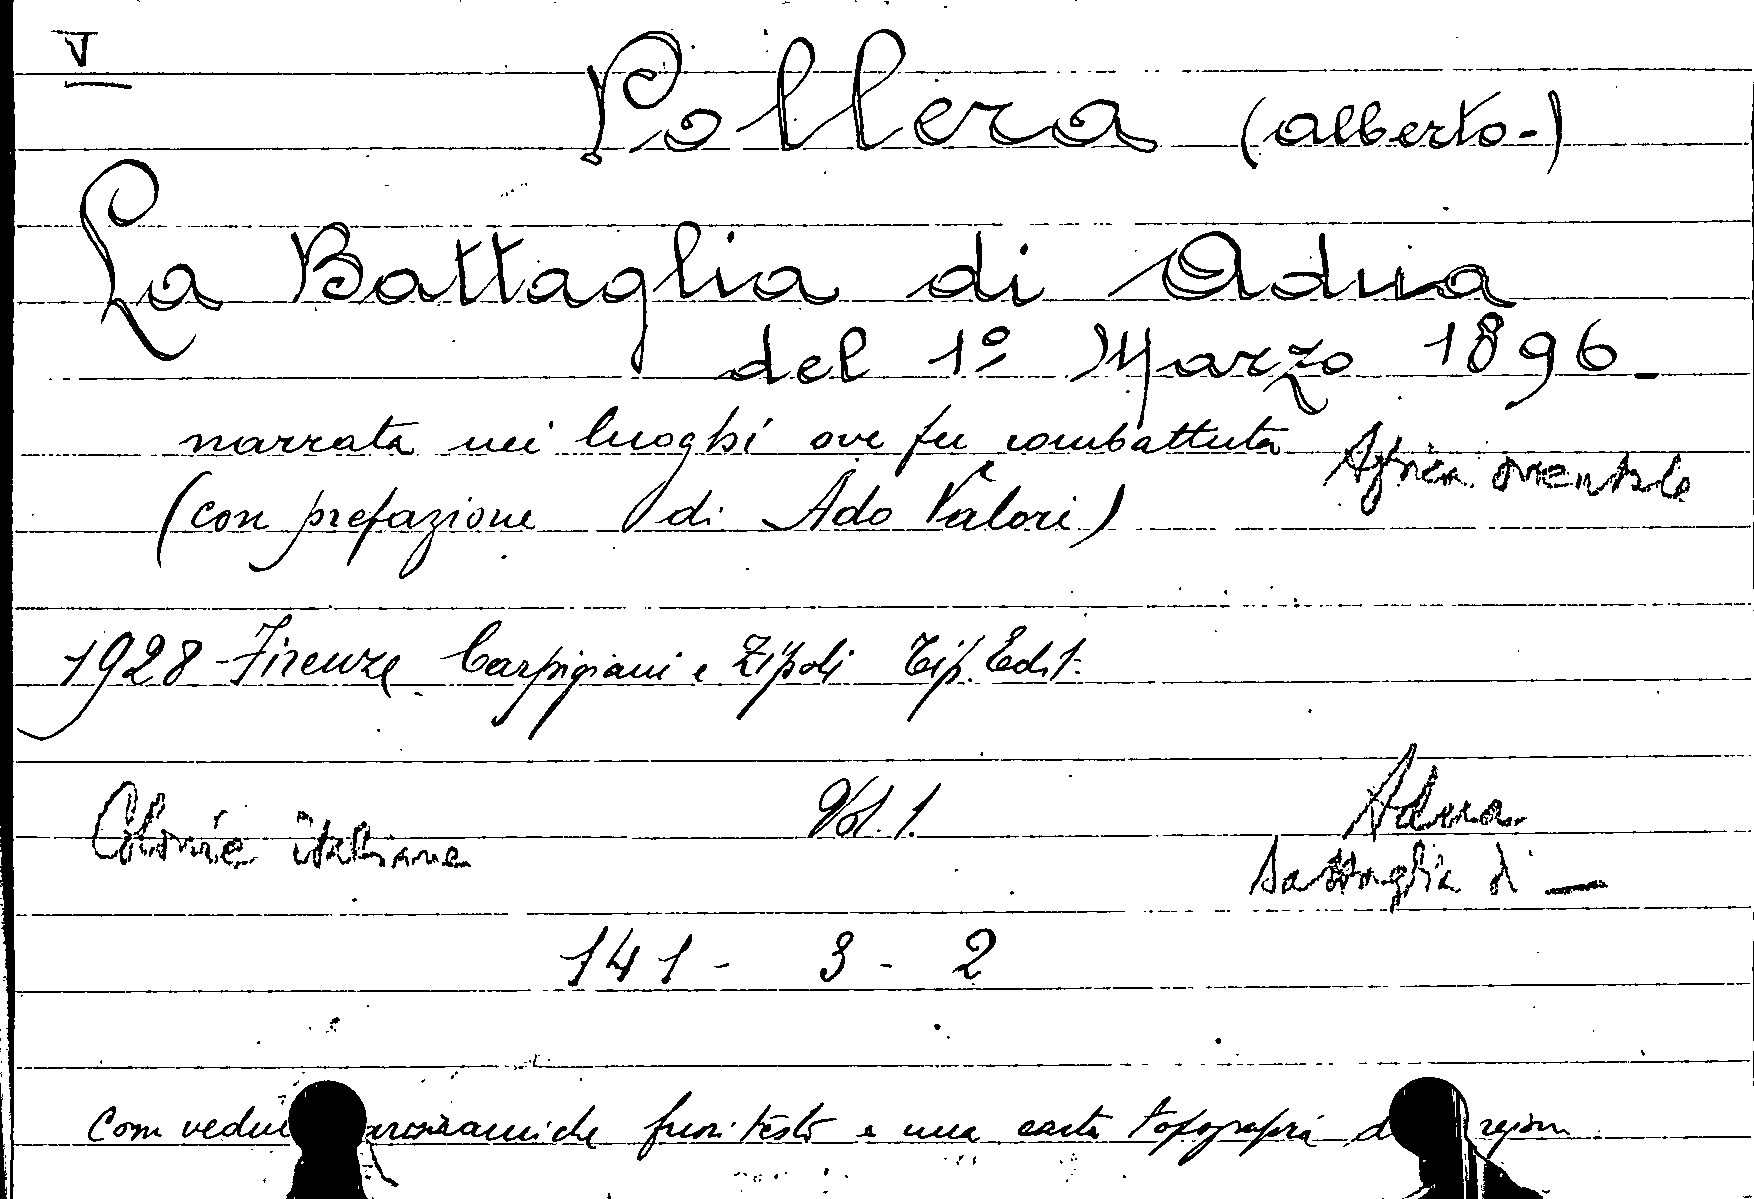 V
Pollera (Alberto-)
La Battaglia di Adua
del 1º Marzo 1896-
narrata nei luoghi ove fu combattuta
Africa orientale
(con prefazione di Ado Valori)
1928 - Firenze Carpigiani e Zipoli Tip. Edit.
Colonie italiane
Vol. 1.
Adua
battaglia di —
141 - 3 - 2
Con fuori testo e una carta topografica